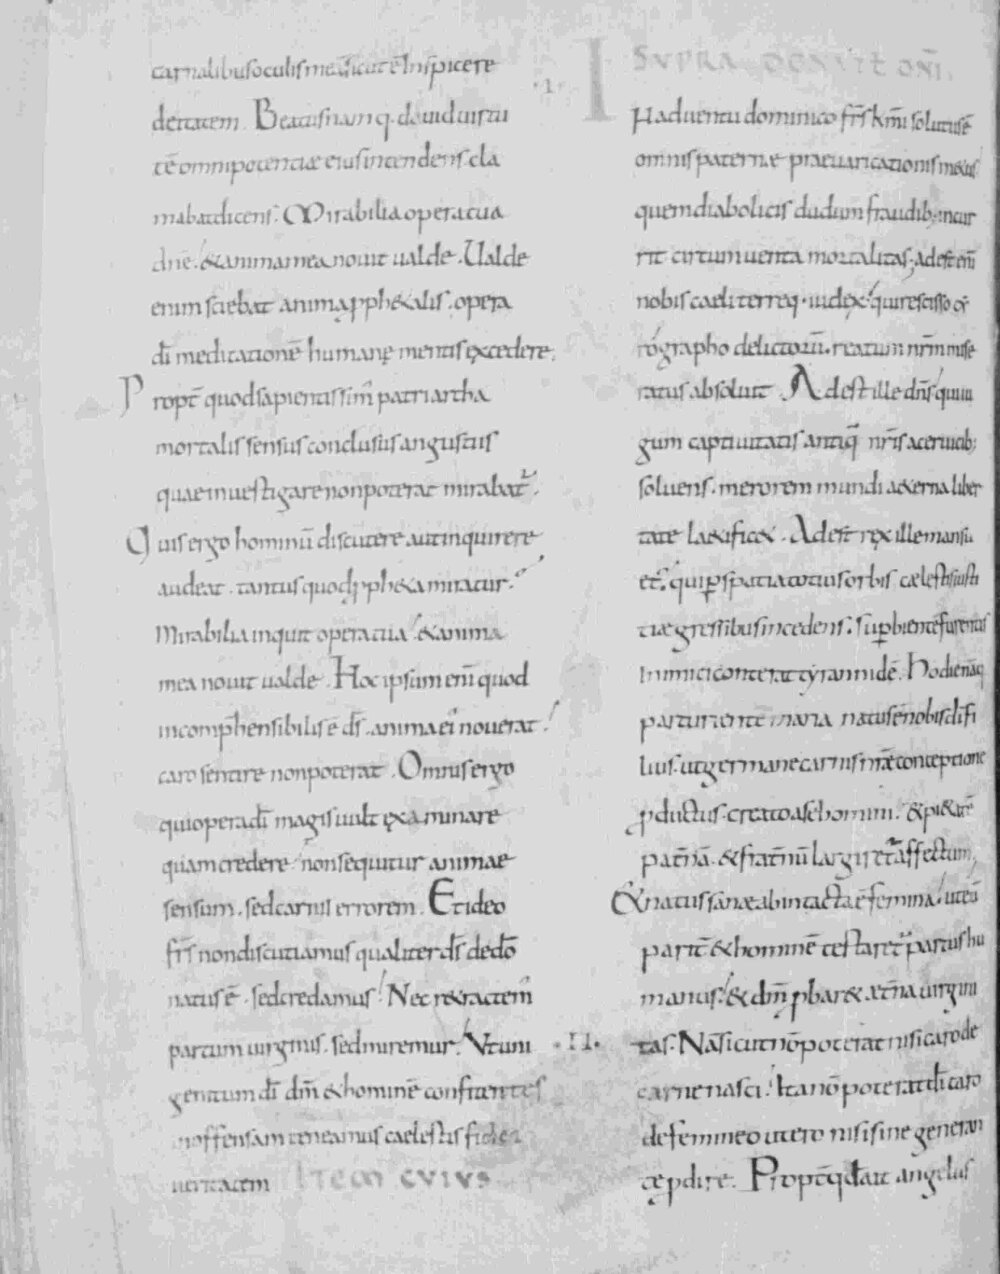 carnalibus oculis medicatē Inspicere
deitatem. Beatus namq. dauid uirtu
tē omnipotentiae eius intendens cla
mabat dicens. Mirabilia opera tua
dnē. & anima mea nouit ualde. Ualde
enim sciebat anima pphetalis. opera
dī meditationē humanę mentis excedere.
Propt̄ quod sapientissim̄ patriartha
mortalis sensus conclusus angustiis
quae inuestigare non poterat mirabat̄.
Quis ergo hominū discutere aut inquirere
audeat. tantus quod ppheta miratur.
Mirabilia inquit opera tua. & anima
mea nouit ualde. Hoc ipsum enī quod
incomp̄hensibilis ē ds̄. anima ei nouerat.
caro sentire non poterat. Omnis ergo
qui opera dī magis uult examinare
quam credere non sequitur animae
sensum. sed carnis errorem. Et ideo
frs̄ non discutiamus qualiter ds̄ de dō
natus ē. sed credamus. Nec retractem̄
partum uirginis. sed miremur. Ut uni
genitum dī dm̄ & hominē confitentes
inoffensam teneamus caelestis fidei
ueritatem ITEM CUIUS
.I. I SUPRA
N aduentu dominico frs̄ kmī solutus ē
omnis paternae praeuaricationis
quem diabolicis dudum fraudib; incur
rit circumuenta mortalitas. adest enī
nobis caeli terreq. iudex. qui rescisso cy
rographo delictorū. reatum nrm̄ mise
ratus absoluit. Adest ille dns̄ qui iu
gum captiuitatis antiq̄ nrīs a ceruicib;
soluens. merorem mundi aeterna liber
tate laetificet. Adest rex ille mansu
etꝰ. qui p spatia totius orbis caelestis iusti
tiae gressibus incedens. supbientē furentis
Inimici conterat tyrannidē. Hodie nāq
parturiente maria natus ē nobis dī fi
lius. ut germane carnis nrāe conceptione
pductus. creato a se homini. & pietatē
patnā. & fratnū largiretꝰ affectum,
& natus sane ab intacta ē femina. ut eū
parit̄ & hominē testaretꝰ partus hu
manus. & dm̄ pbaret aetna uirgini
.II. tas. Nā sicut nō poterat nisi caro de
carne nasci. Ita nō poterat dī caro
de femineo utero nisi sine generan
te pdire. Propt̄ qđ ait angelus